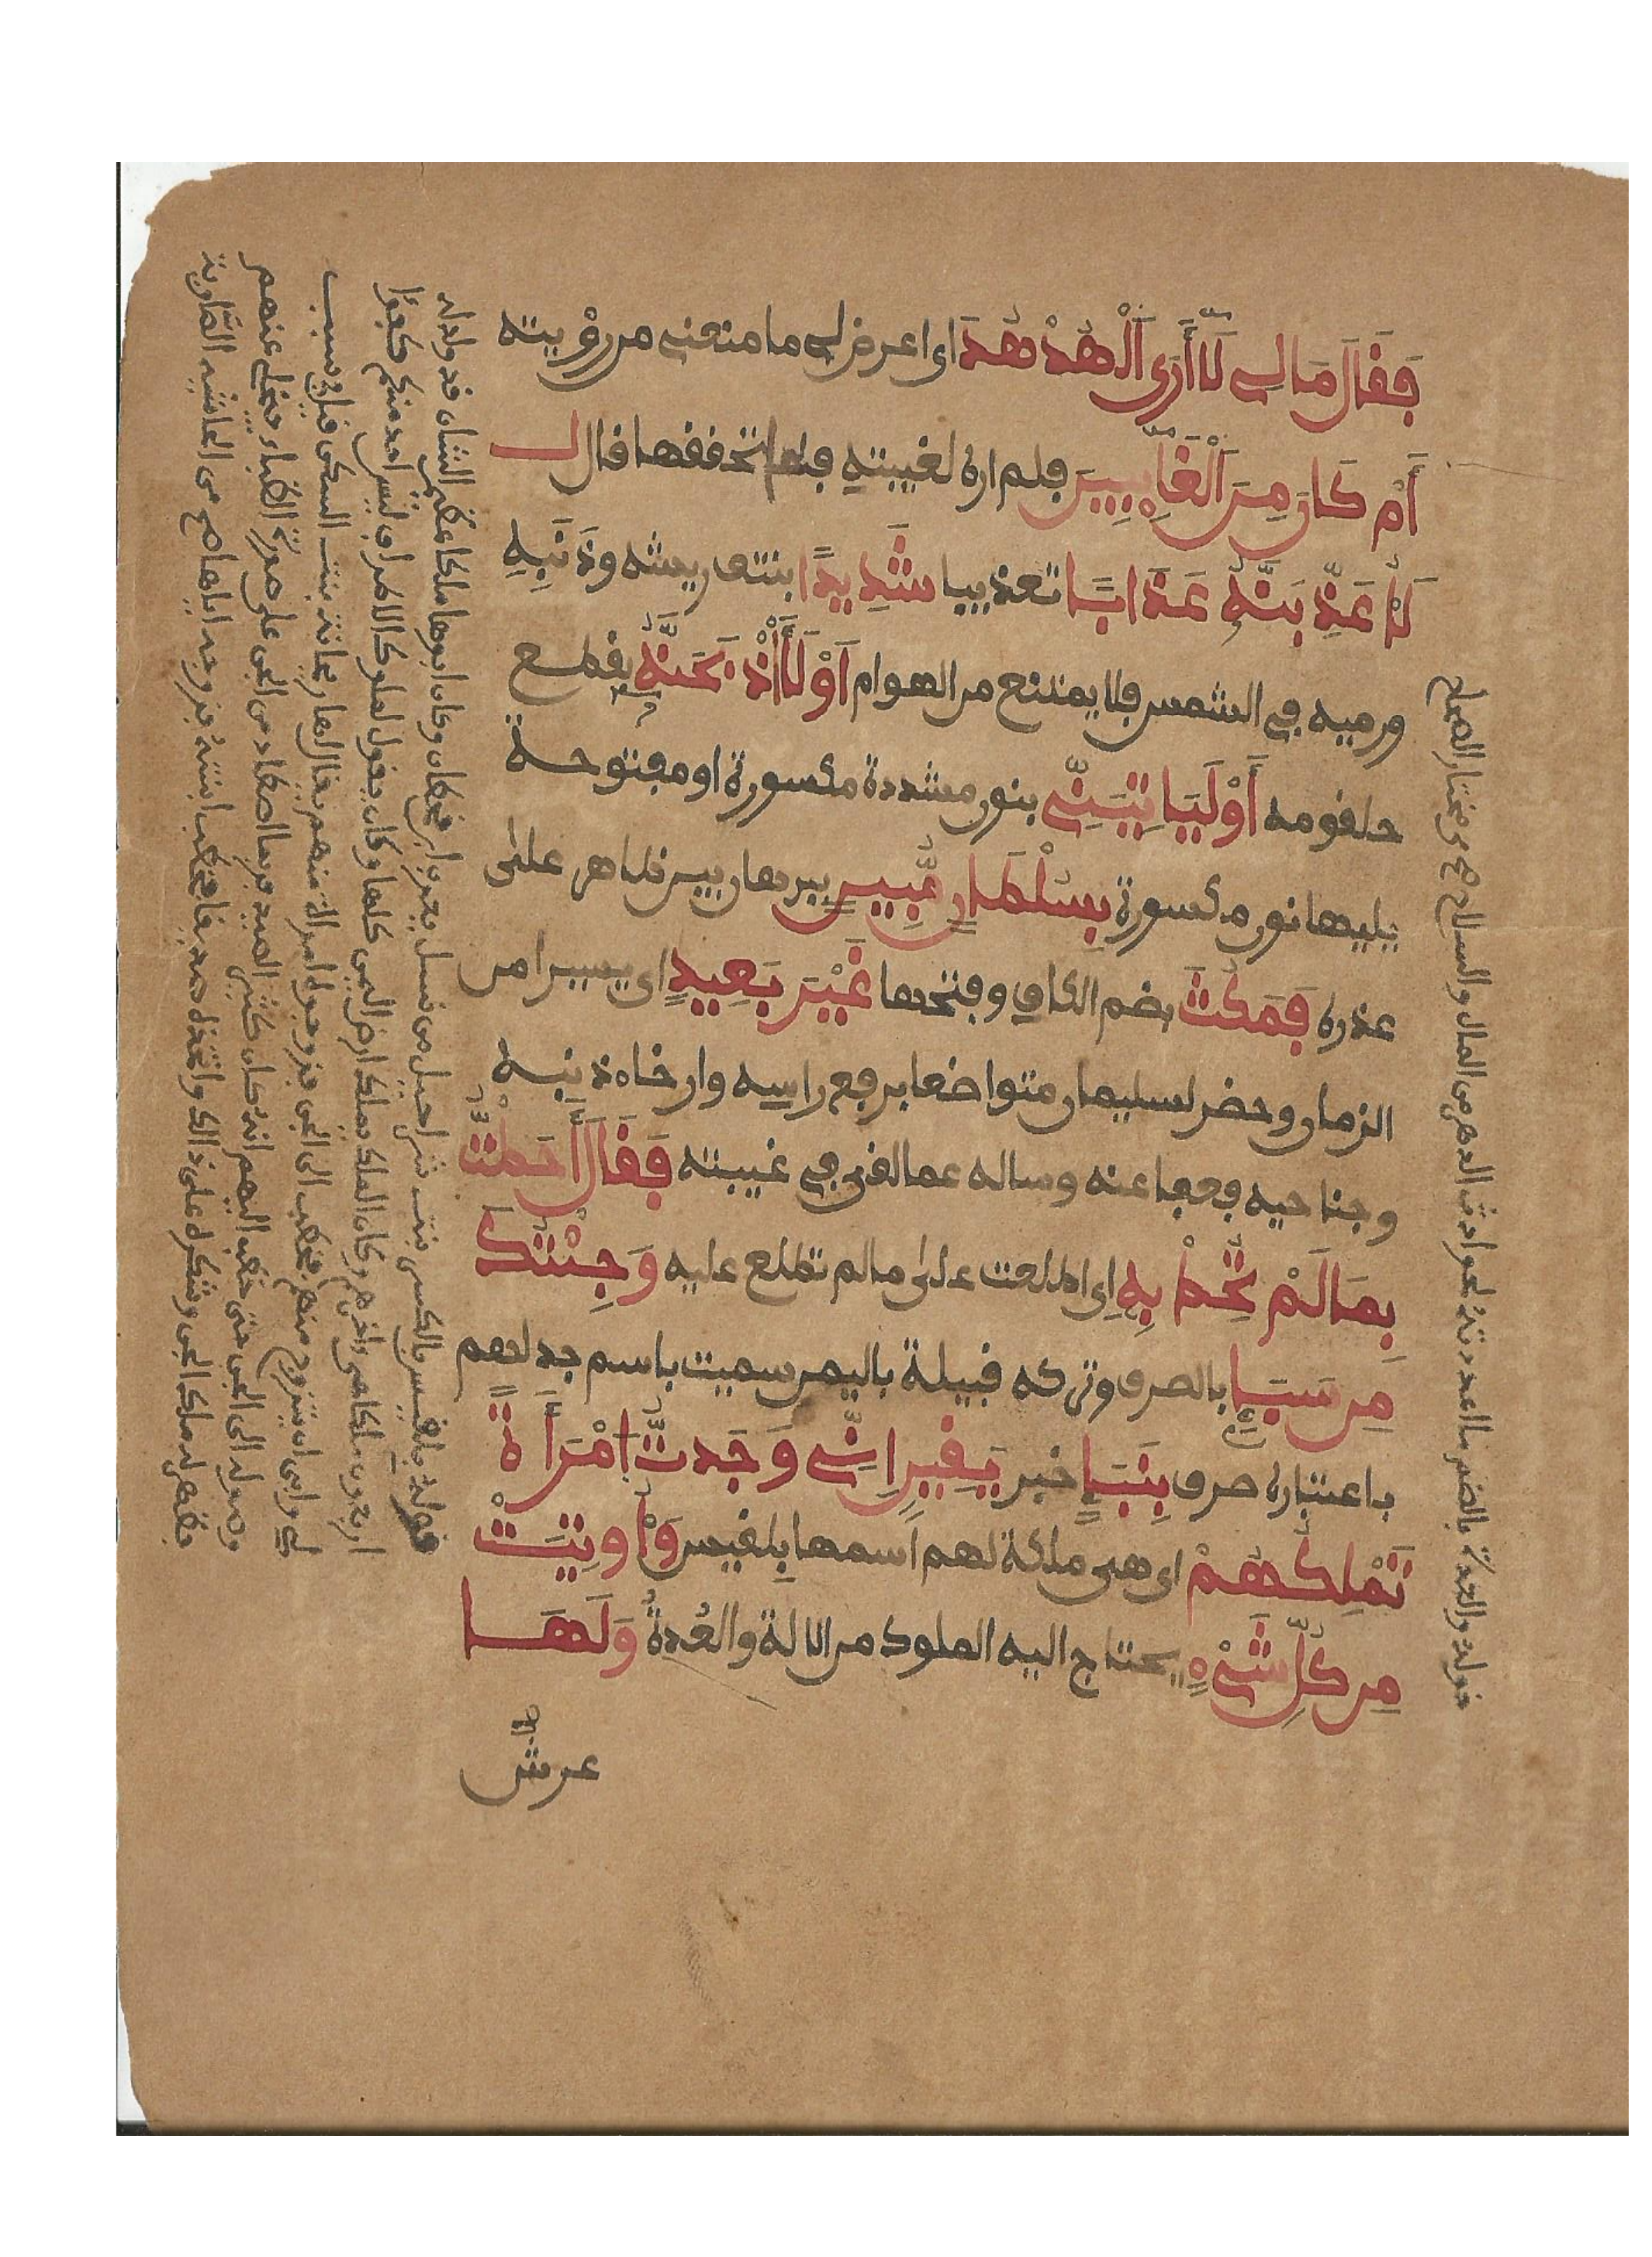 فَقَالَ مَالِي لَا أَرَى اَلْهُدْهُدَ اي اعرض لي ما منعني من رؤيته
أَمْ كَانَ مِنَ اَلْغَآئِبِينَ فلم اره لغيبته فلما تحققها قال
لَأُعَذِّبَنَّهُۥ عَذَابًا تعذيبا شَدِيدًا بنتف ريشه وذَنَبِهِ
ورميه في الشمس فلا يمتنع من الهوام اَوْ لَأَاْذْبَحَنَّهُۥ بقطع
حلقومه أَوْ لَيَاتِيَنِّي بنون مشددة مكسورة او مفتوحة
يليها نون مكسورة بِسُلْطَانٍ مُّبِينٍ ببرهان بين ظاهر على
عذره فَمَكُثَ بضم الكاف وفتحها غَيْرَ بَعِيدٍ اي يسيرا من
الزمان وحضر لسليمان متواضعا برفع راسه وارخاء ذنبه
وجناحيه فعفا عنه وساله عما لقي في غيبته فَقَالَ أَحَطتُّ
بِمَا لَمْ تُحِطْ بِهِ اي اطلعت على ما لم تطلع عليه وَجِئْتُكَ
مِن سَبَإٍ بالصرف وتركه قبيلة باليمن سميت باسم جد لهم
باعتباره صرف بِنَبَإٍ خبر يَقِينٍ اِنِّي وَجَدتُّ اَمْرَأَةً
تَمْلِكُهُمْ اي هي ملكة لهم اسمها بِلقيس وَأُوتِيَتْ
مِن كُلِّ شَيْءٍ يحتاج اليه الملوك من الالة والعُدةُ وَلَهَا
عرش
قوله والعدة بالضم ما اعددته لحوادث الدهر من المال والسلاح من مختار الصحاح
قوله بلقيس بالكسر بنت شراحيل من نسل يعرب ابن قحطان وكان ابوها ملكا عظيم الشان قد ولد له
اربعون ملكا هو اخرهم وكان الملك يملك ارض اليمن كلها وكان يقول لملوك الاطراف ليس احد منكم كفؤا
لي وابى ان يتزوج منهم فخطب الى الجن فزوجوه امراة منهم يقال لها ريحانة بنت السكن قيل في سبب
وصوله الى الجن حتى خطب اليهم انه كان كثير الصيد فربما اصطاد من الجن على صورة الظباء فيخلي عنهم
فظهر له ملك الجن وشكره على ذالك واتخذه صديقا فخطب ابنته فزوجه اياها من حاشيه الصاوية